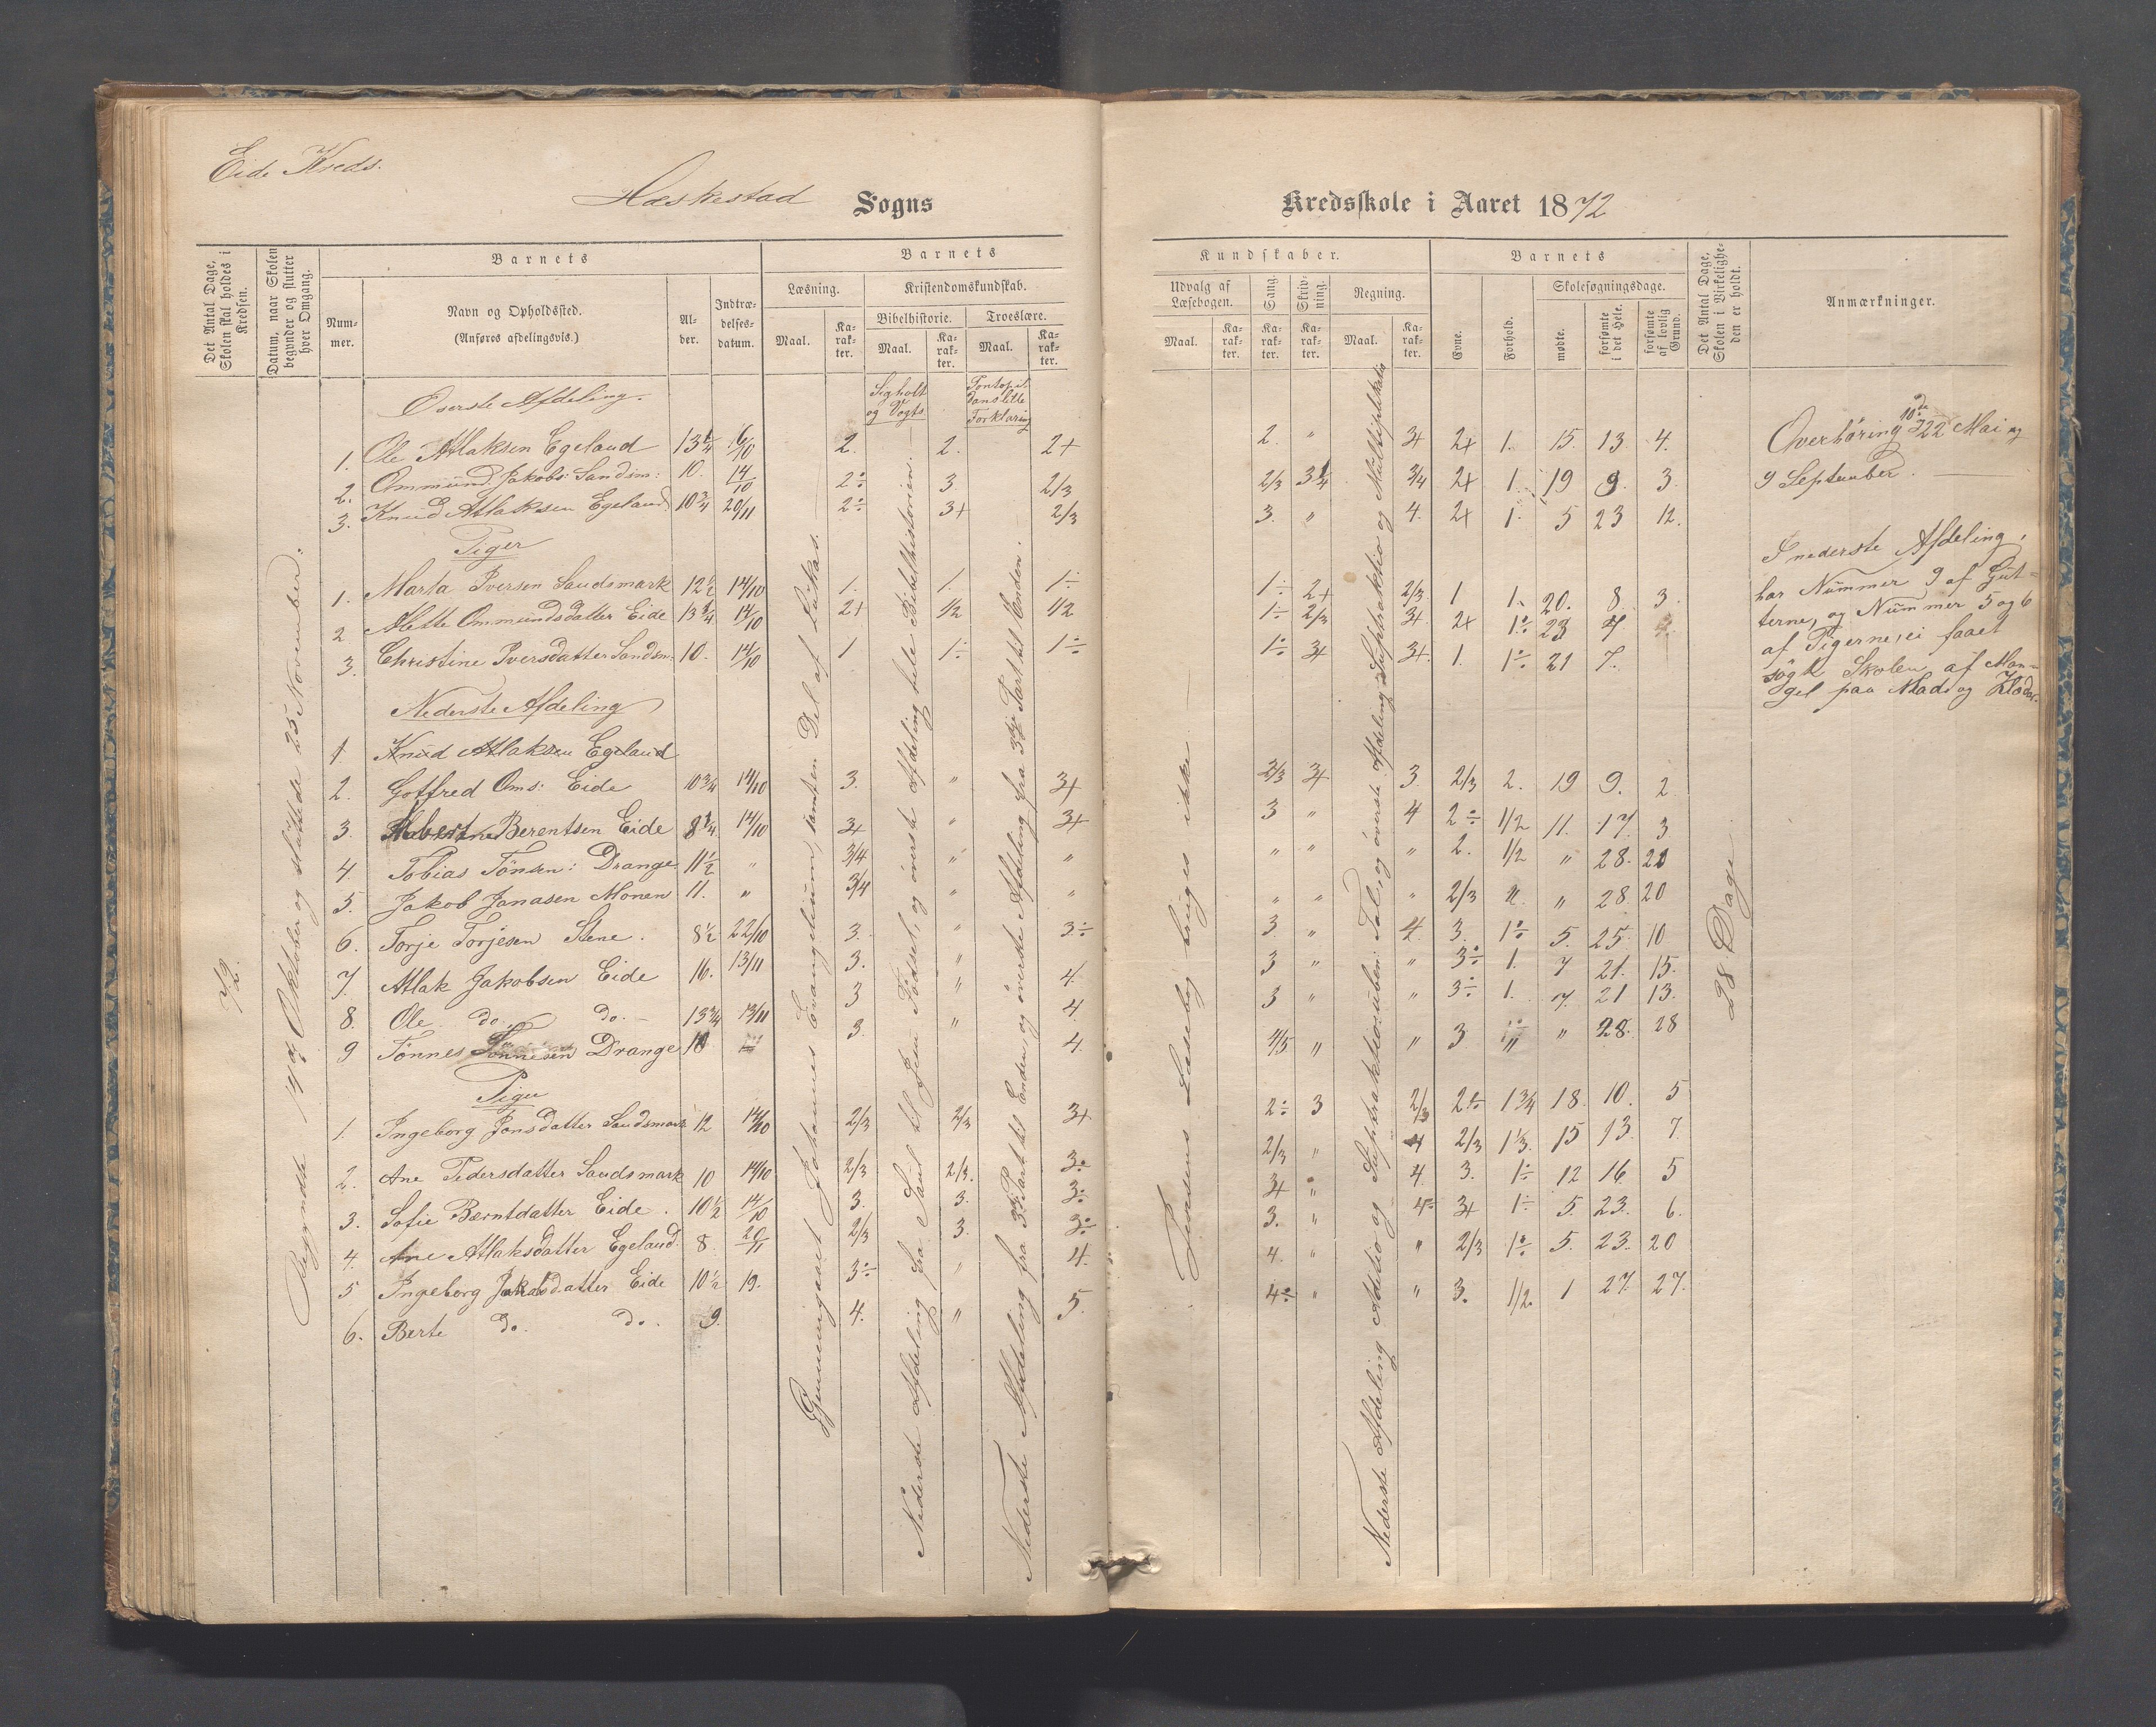 Eide Kreds.
Hæskestad Sogns
Kredsskole i Aaret 1872
Det Antal Dage, Skolen skal holdes i Kredsen.
Datum, naar Skolen begynder og slutter hver Omgang.
Barnets
Nummer.
Navn og Opholdssted.
(Anføres afdelingsvis.)
Alder.
Indtrædelsesdatum.
Barnets
Læsning.
Maal.
Karakter.
Kristendomskundskab.
Bibelhistorie.
Maal.
Karakter.
Troeslære.
Maal.
Karakter.
Kundskaber.
Udvalg af Læsebogen.
Maal.
Karakter.
Sang.
Karakter.
Skrivning.
Karakter.
Regning.
Maal.
Karakter.
Barnets
Evne.
Forhold.
Skolesøgningsdage.
mødte.
forsømte i det Hele.
forsømte af lovlig Grund.
Det Antal Dage, Skolen i Virkeligheden er holdt.
Anmærkninger.
72.
Begyndte 14de Oktober og sluttede 25 November.
Gjennemgaaet Johannes Evangelium, samt en Del af Lukas.
og Vogts
Forklaring
Nederste Afdeling fra Saul til Jesu Fødsel, og øverste Afdeling hele Bibelhistorien.
Nederste Afdeling fra 3die Part til Enden, og øverste Afdeling fra 3die Part til Enden.
Jensens Læsebog bruges ikke
Nederste Afdeling Additio og Subtraktio: uben: Tal, og øverste Afdeling Subtraktio og Multiplikatio
28 Dage
Øverste Afdeling.
1. Ole Atlaksen Egeland 13 1/4 16/10 2. 2. 2+ 2. " 3+ 2+ 1. 15. 13. 4.
2. Ommund Jakobs: Sandsm: 10. 14/10 2÷ 3 2/3 2/3 3 1/4 3/4 2+ 1. 19 9. 3.
3. Knud Atlaksen Egeland 10 3/4 20/11 2÷ 3+ 2/3 3. " 4. 2+ 1. 5 23 12.
Piger
1. Marta Iversen Sandsmark 12 1/2 14/10 1. 1. 1÷ 1÷ 2+ 2/3. 1 1. 20. 8. 3.
2 Alette Ommundsdatter Eide 13 1/4 14/10 2+ 1/2 1/2 1÷ 2/3 3+. 2+ 1÷. 23 7.
3. Christine Iversdatter Sandsm. 10. 14/10 1 1÷ 1÷ 1÷ 3+ 3+. 1. 1÷. 21 7.
Nederste Afdeling
1 Knud Atlaksen Egeland
2. Gotfred Oms: Eide 10 3/4 14/10 3. " 3+ 2/3 3+ 3 2/3 2. 19 9. 2.
3. Berentsen Eide 8 1/4 14/10 3+ " 3+ 3 " 4 2÷ 1/2 11. 17. 3
4. Tobias Tönsen: Drange 11 1/2 " 3/4 " " " " " 2. 1/2 " 28. 20
5. Jakob Janasen Monen 11. " 3/4 " " " " " 2/3 " 28 20
6. Torje Torjesen Stene. 8 1/2 22/10 3. " 3÷ 3. " 4. 3. 1÷ 5. 25. 10
7. Atlak Jakobsen Eide 16. 13/11 3. " 4. 3 " " 3÷ 1. 7 21. 15.
8. Ole do. do. 13 3/4 13/11 3 " 4. 3 " " 3÷ 1. 7. 21 13.
9 Tönnes Tönnesen Drange 10 3. " 4. 4/5 " " 3 " 28. 28
Piger
1. Ingeborg Jonsdatter Sandsmark 12 14/10 2/3 2/3 3+ 2÷ 3 2/3 2÷ 1 3/4 18. 10. 5
2. Ane Pedersdatter Sandsmark 10 14/10 2/3 2/3. 3÷ 2/3 " 4 2/3 1 1/3. 15 13. 7.
3. Sofie Bærntdatter Eide. 10 1/2 14/10 3. 3. 3÷ 3+ " 4. 3. 1÷ 12 16. 5
4. Ane Atlaksdatter Egeland. 8. 20/11 2/3 3. 3÷ 3. " 4÷ 3+ 1÷ 5. 23. 6.
5 Ingeborg Jakobsdatter Eide 10 1/2 19. 3÷ " 4. 4. " " 2/3 1÷. 5. 23. 20
6. Berte do. do. 9. 4. " 5. 4÷ " " 3. 1/2. 1 27. 27.
Overhøring 10de 22 Mai og
9 September.
I nederste Afdeling,
har Nummer 9 af Gut-
terne, og Nummer 5 og 6
af Pigerne, ei faaet
søgt Skolen af Man-
gel paa Mad og Klæder.